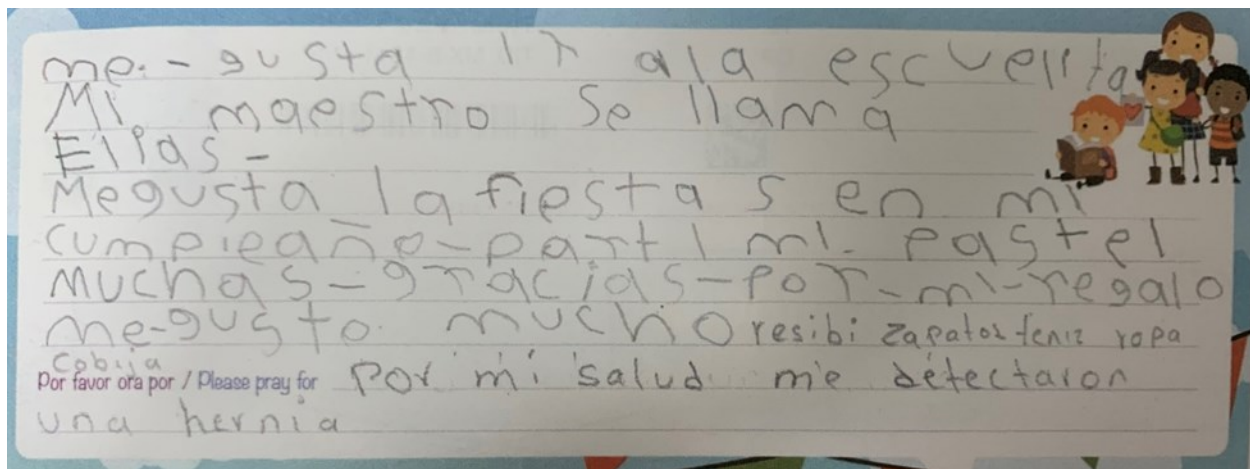 me.-gusta ir ala escuelita
Mi maestro se llama
Elias-
Megusta la fiesta s en mi
cumpleaño-parti mi- pastel
muchas-gracias-por-mi-regalo
me-gusto. mucho resibi zapatos teniz ropa
cobija
Por favor ora por / Please pray for Por mi salud me detectaron
una hernia